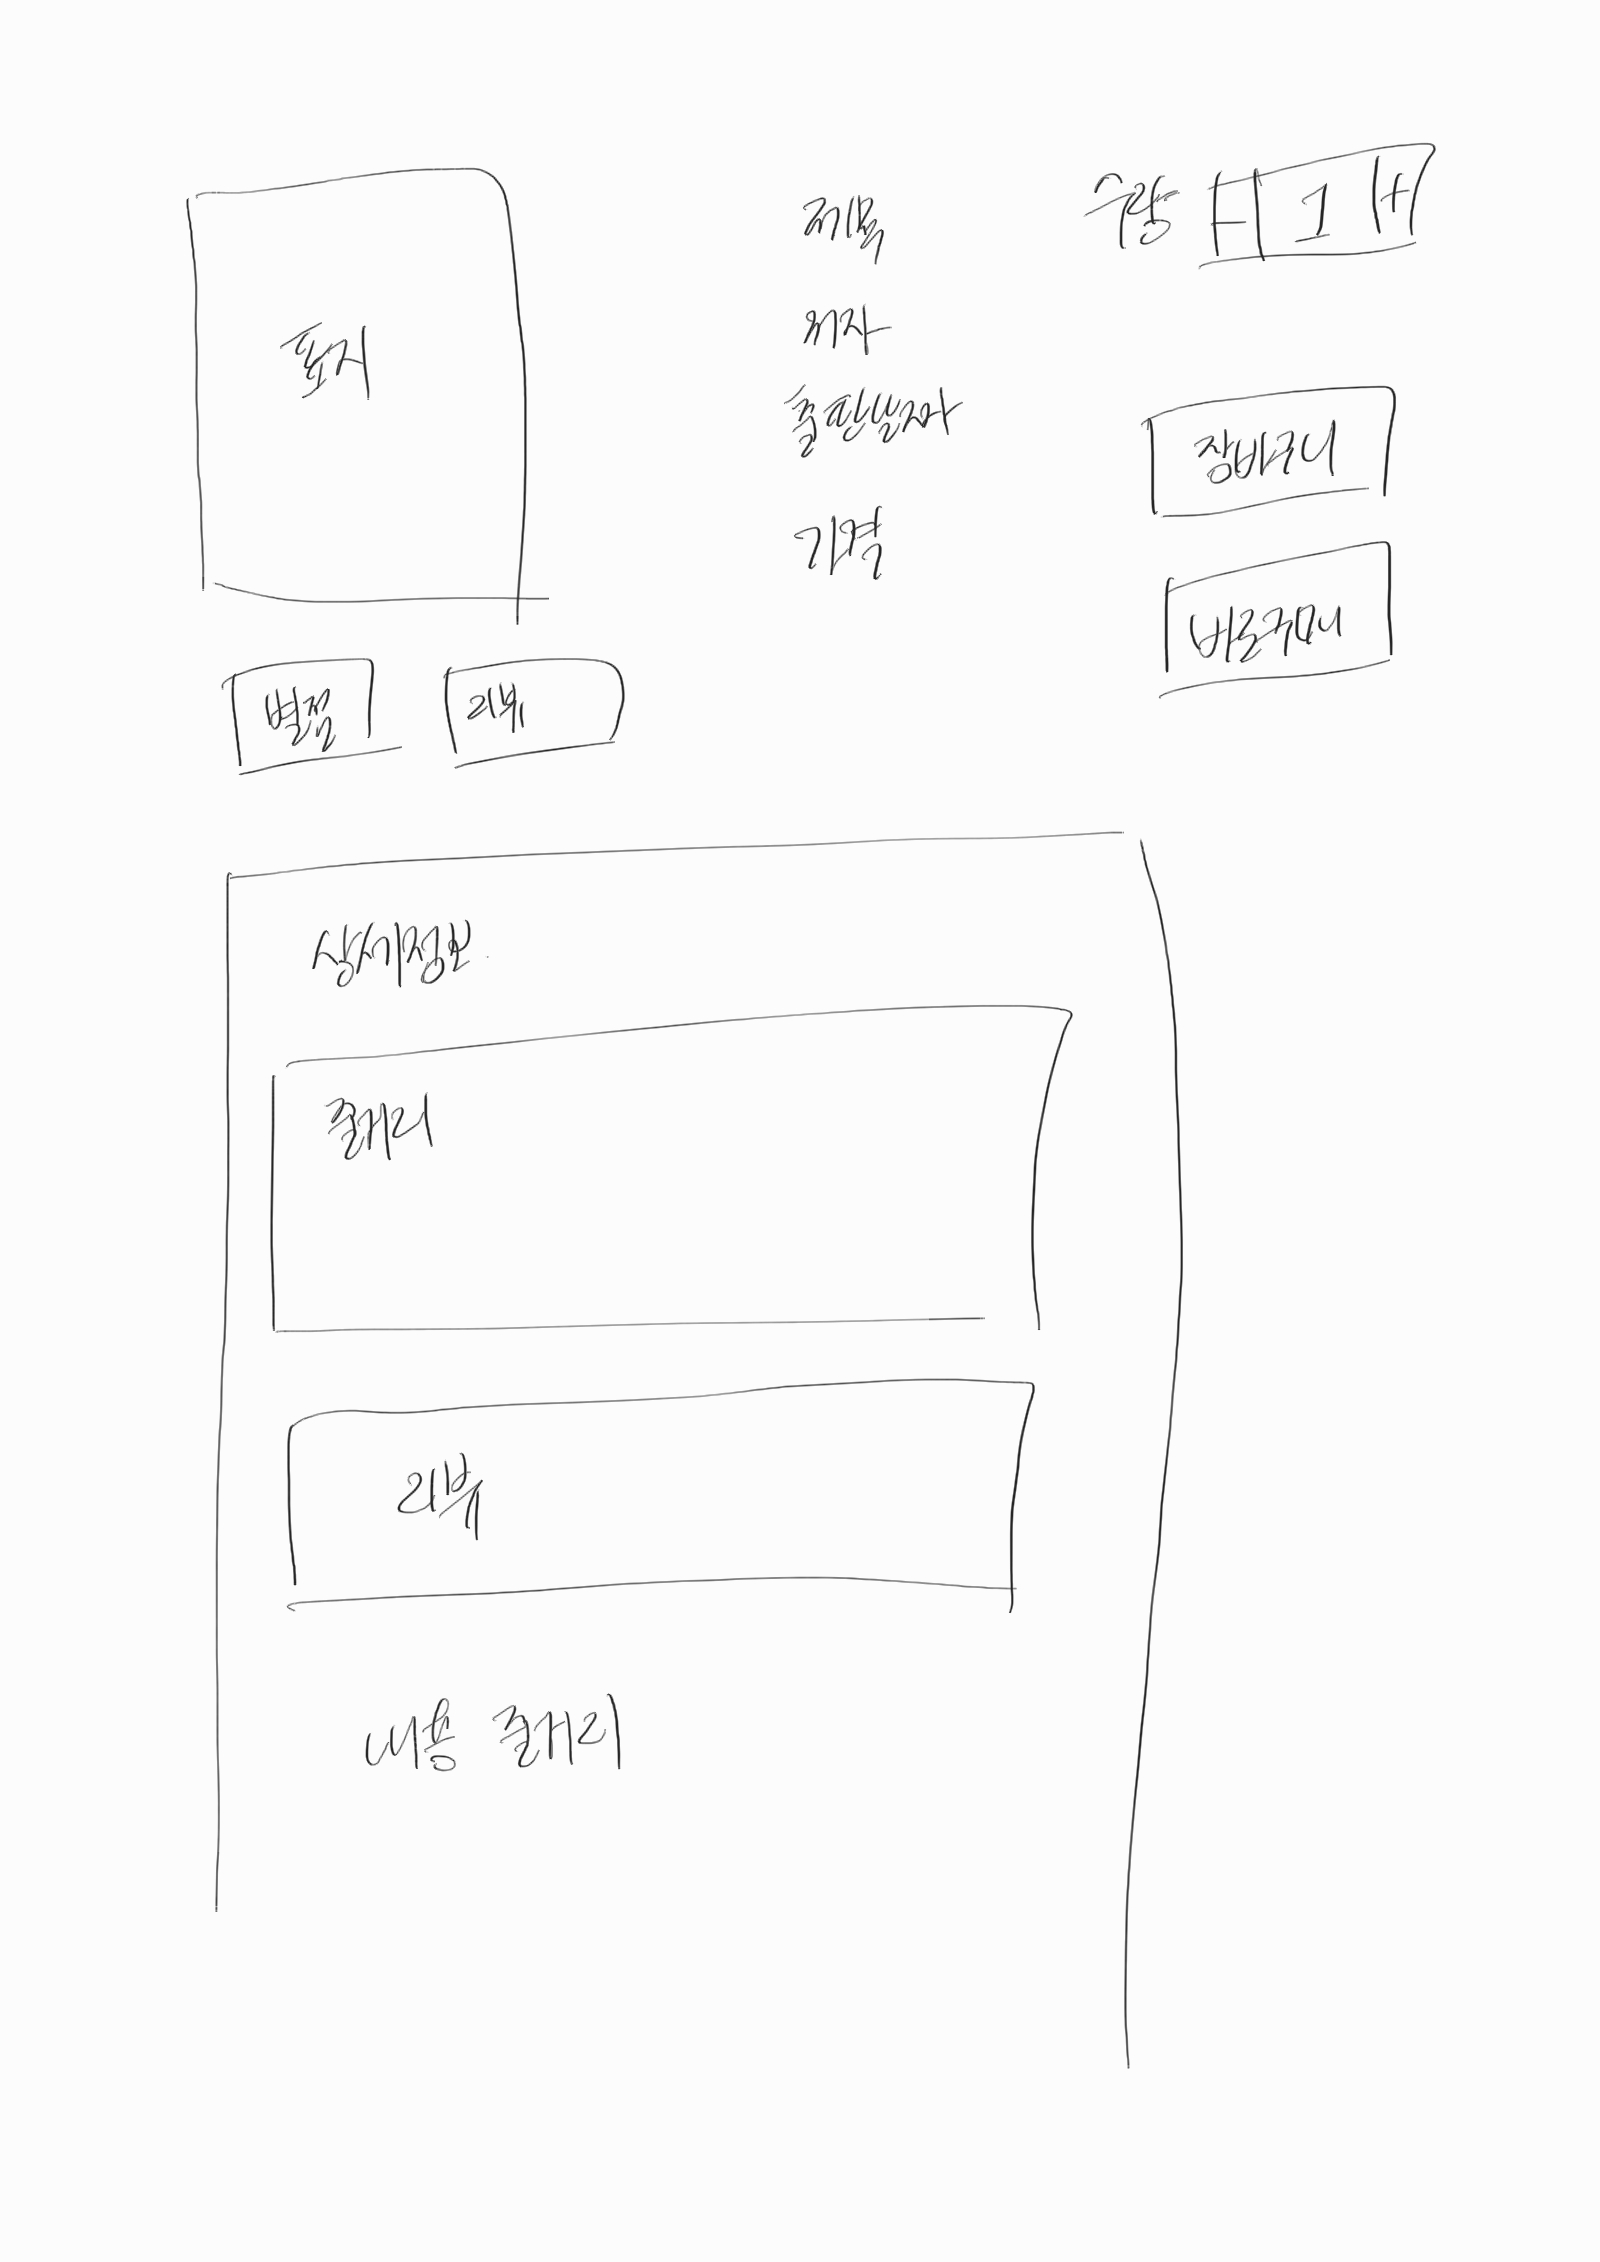 표지
제목
저자
출판날짜
가격
수량 - 1 +
장바구니
바로구매
별점
리뷰
상세정보
줄거리
리뷰
내용 줄거리